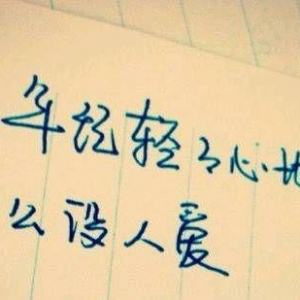 年纪轻々心
么没人爱